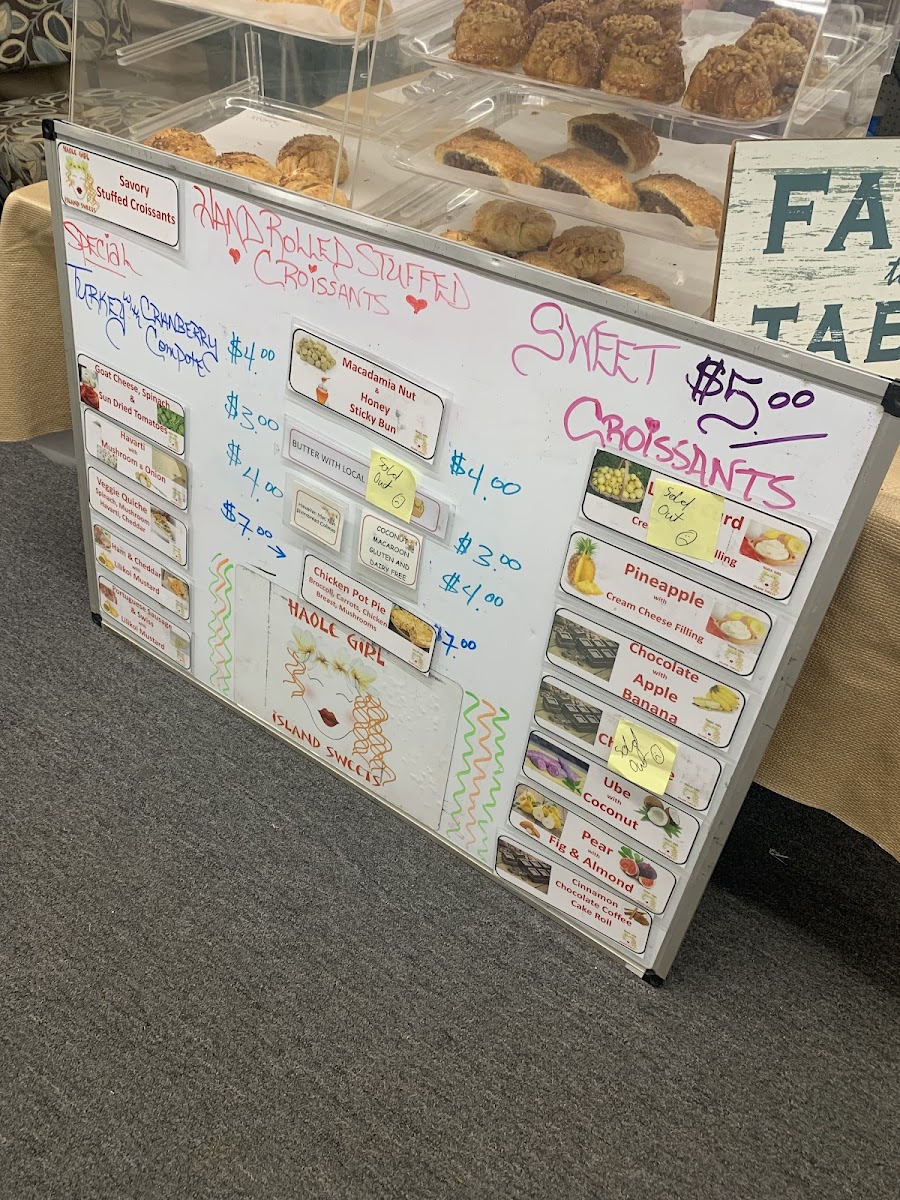 HAOLE GIRL
ISLAND SWEETS
Savory
Stuffed Croissants
HAND ROLLED STUFFED
CROISSANTS
SPECIAL
TURKEY with CRANBERRY
Compote
Goat Cheese, Spinach
&
Sun Dried Tomatoes
Havarti
with
Mushroom & Onion
Veggie Quiche
Spinach, Mushroom
Havarti, Cheddar
Ham & Cheddar
Lilikoi Mustard
Portuguese Sausage
& Swiss
with
Lilikoi Mustard
$4.00
$3.00
$4.00
$7.00
Macadamia Nut
&
Honey
Sticky Bun
BUTTER WITH LOCAL
Sold
Out
COCONUT
MACAROON
GLUTEN AND
DAIRY FREE
Chicken Pot Pie
Broccoli, Carrots, Chicken
Breast, Mushrooms
$4.00
$3.00
$4.00
$7.00
HAOLE GIRL
ISLAND SWEETS
SWEET $5.00
CROISSANTS
Sold
Out
rd
lling
Pineapple
with
Cream Cheese Filling
Chocolate
Apple
Banana
Sold
Out
Ube
with
Coconut
Pear
with
Fig & Almond
Cinnamon
Chocolate Coffee
Cake Roll
FA
TAB